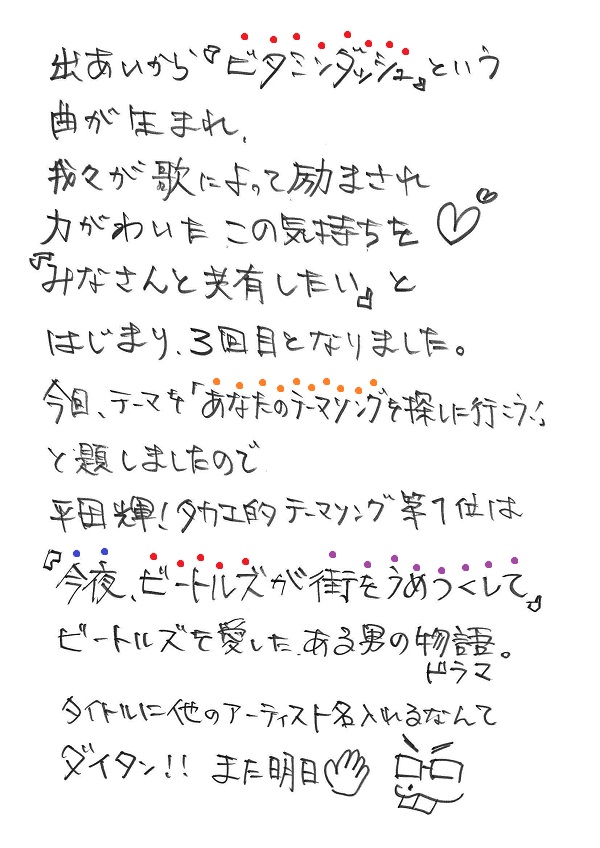 出あいから『ビタミンダッシュ』という
曲が生まれ、
我々が歌によって励まされ
力がわいた この気持ちを
『みなさんと共有したい』と
はじまり、3回目となりました。
今回、テーマを「あなたのテーマソングを探しに行こう!」
と題しましたので
平田輝!タカエ的テーマソング第1位は
『今夜、ビートルズが街をうめつくして』
ビートルズを愛した、ある男の物語。
ドラマ
タイトルに他のアーティスト名入れるなんて
ダイタン!! また明日